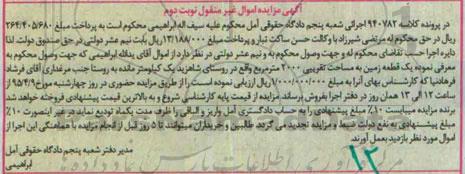 آگهی مزایده اموال غیر منقول نوبت دوم
در پرونده کلاسه ۹۴۰۷۸۲ اجرائی شعبه پنجم دادگاه حقوقی آمل محکوم علیه سیف اله ابراهیمی محکوم است به پرداخت مبلغ ۲۶۴/۴۰۵/۶۸۰
ریال در حق محکوم له مرتضی شیرزاد با وکالت حسن ساکت تبار و پرداخت مبلغ ۱۳/۱۸۸/۰۰۰ ریال بابت نیم عشر دولتی در حق صندوق دولت. لذا
دایره اجرا حسب تقاضای محکوم له و جهت وصول محکوم به و نیم عشر دولتی در نظر دارد از اموال آقای یداله ابراهیمی که جهت وصول محکوم به
معرفی نموده یک قطعه زمین به مساحت تقریبی ۲۰۰۰ مترمربع واقع در روستای شاهزید یک کیلومتر مانده به روستا جنب مرغداری آقای فرشاد
فرهادنیا که کارشناس بهای آنرا به مبلغ ۱/۰۰۰/۰۰۰/۰۰۰ ریال ارزیابی نموده است را از طریق مزایده حضوری در روز چهارشنبه مورخ ۹۵/۴/۹ از
ساعت ۱۲ الی ۱۳ همان روز در دفتر اجرا بفروش برساند. مزایده از قیمت پایه کارشناسی شروع و به بالاترین قیمت پیشنهادی فروخته خواهد شد
برنده مزایده میبایست ۱۰٪ مبلغ پیشنهادی را به حساب دادگستری آمل واریز و الباقی را ظرف مدت یکماه تودیع نماید در غیر اینصورت ۱۰٪
مبلغ پیشنهادی به نفع دولت ضبط و مزایده تجدید می گردد طالبین و خریداران میتوانند تا ۵ روز قبل از انجام مزایده با هماهنگی این اجرا از
اموال مورد نظر بازدید بعمل آورند.
مدیر دفتر شعبه پنجم دادگاه حقوقی آمل
ابراهیمی